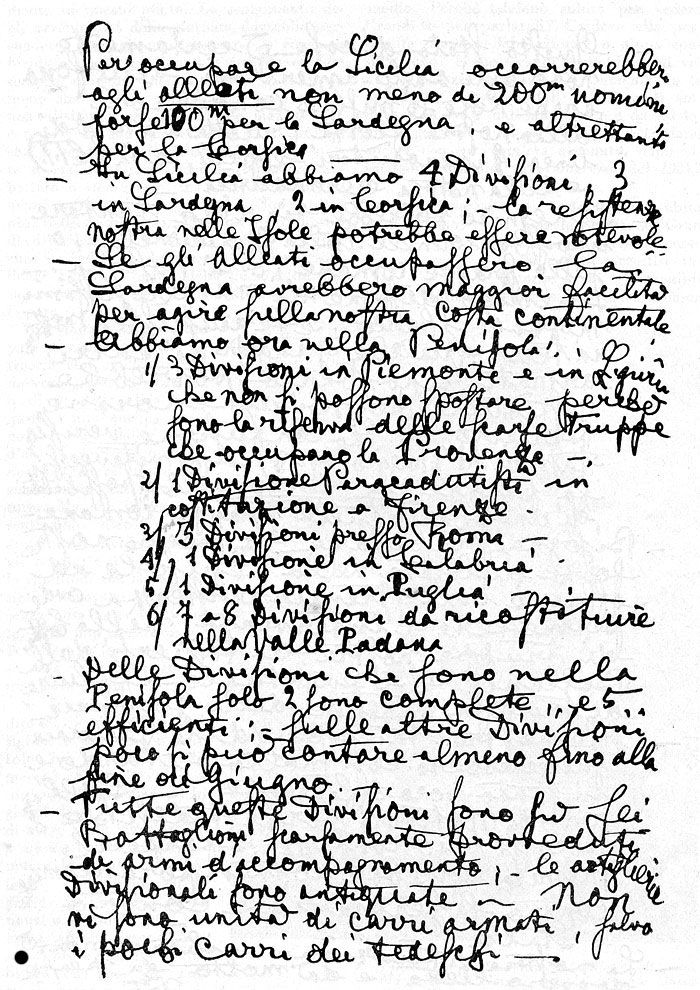 Per occupare la Sicilia occorrerebbero
agli alleati non meno di 200m uomini
forse 100m per la Sardegna, e altrettanti
per la Corsica
— In Sicilia abbiamo 4 Divisioni, 3
in Sardegna 2 in Corsica; - la resistenza
nostra nelle Isole potrebbe essere notevole
— Se gli Alleati occupassero la
Sardegna avrebbero maggiori facilità
per agire sulla nostra Costa continentale
— Abbiamo ora nella Penisola:
1/ 3 Divisioni in Piemonte e in Liguria
che non si possono spostare perché
sono la riserva delle scarse truppe
che occupano la Provenza —
2/ 1 Divisione Paracadutisti in
costituzione a Firenze -
3/ 3 Divisioni presso Roma —
4/ 1 Divisione in Calabria -
5/ 1 Divisione in Puglia —
6/ 7 a 8 Divisioni da ricostituire
nella Valle Padana
- Delle Divisioni che sono nella
Penisola solo 2 sono complete, e 5
efficienti; - sulle altre Divisioni
poco si può contare almeno fino alla
fine di Giugno
— Tutte queste Divisioni sono su sei
Battaglioni scarsamente provveduti
di armi d'accompagnamento; - le artiglierie
Divisionali sono antiquate — Non
vi sono unità di carri armati, salvo
i pochi carri dei tedeschi —